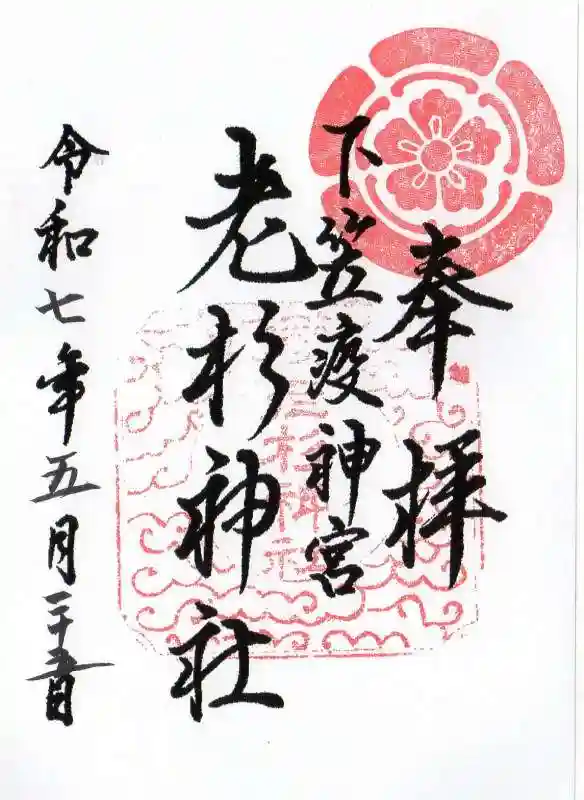 奉拝
下笠疫神宮
老杉神社
令和七年五月二十五日